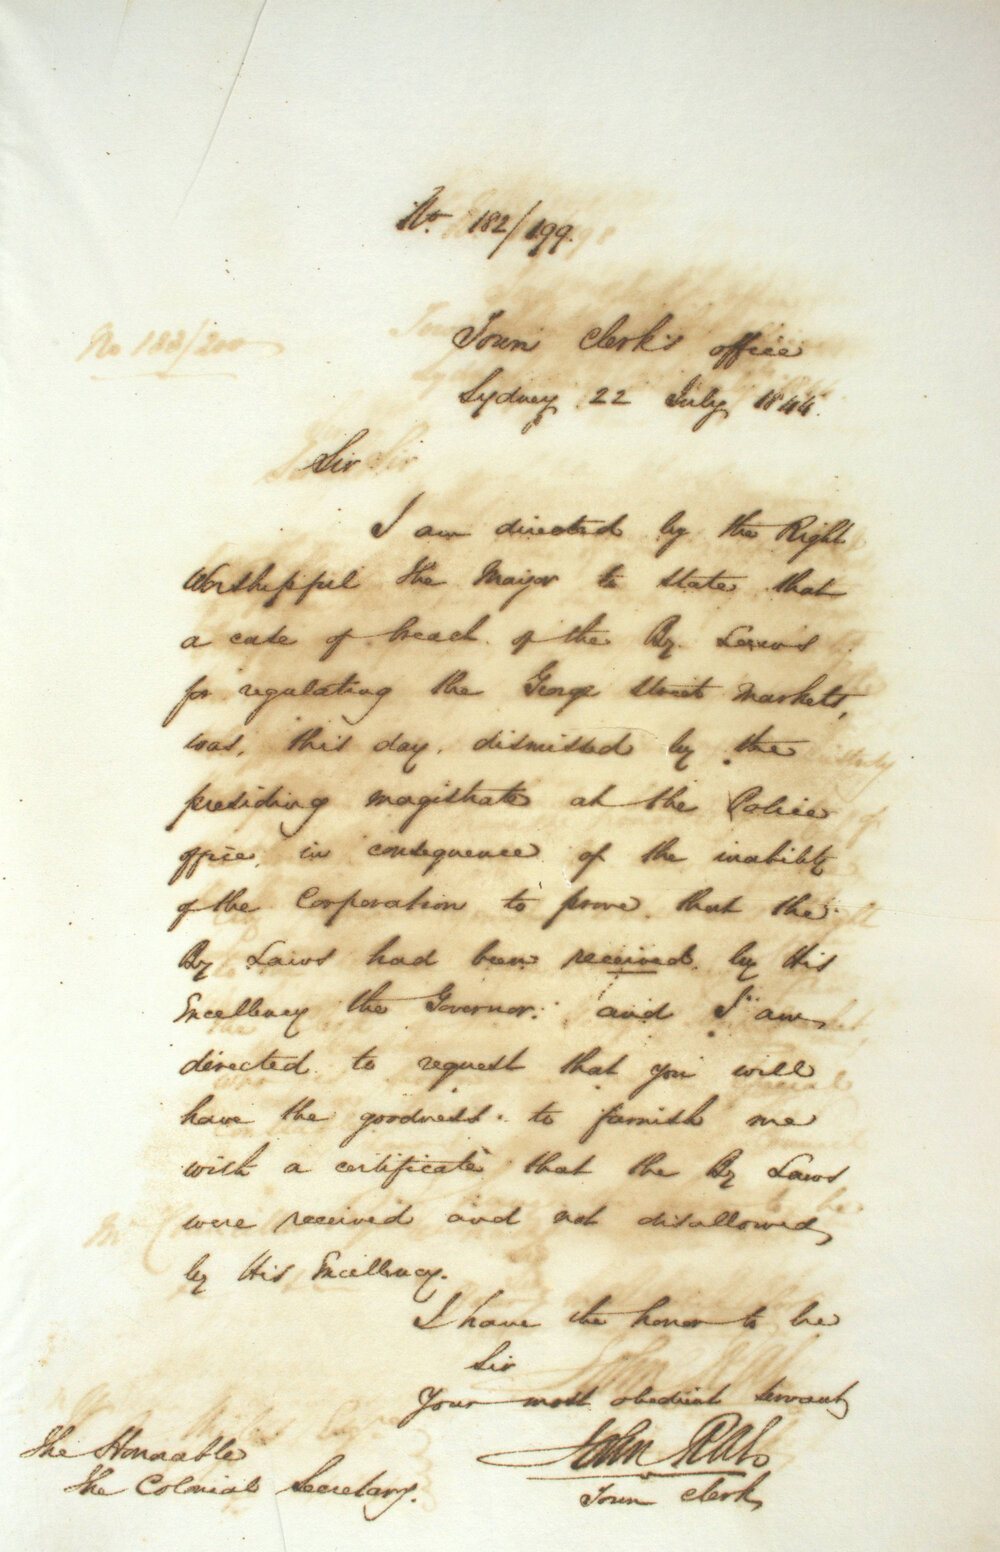 No. 182/199.
No 183/200
Town Clerk's office
Sydney 22 July 1844.
Sir
I am directed by the Right
Worshipful the Mayor to state that
a case of breach of the By Laws
for regulating the George Street Markets,
was, this day, dismissed by the
presiding magistrate at the Police
office, in consequence of the inability
of the Corporation to prove that the
By Laws had been received by His
Excellency the Governor: and I am
directed to request that you will
have the goodness to furnish me
with a certificate that the By Laws
were received and not disallowed,
by His Excellency.
I have the honor to be
Sir
Your most obedient servant
John
Town Clerk
The Honorable
The Colonial Secretary.